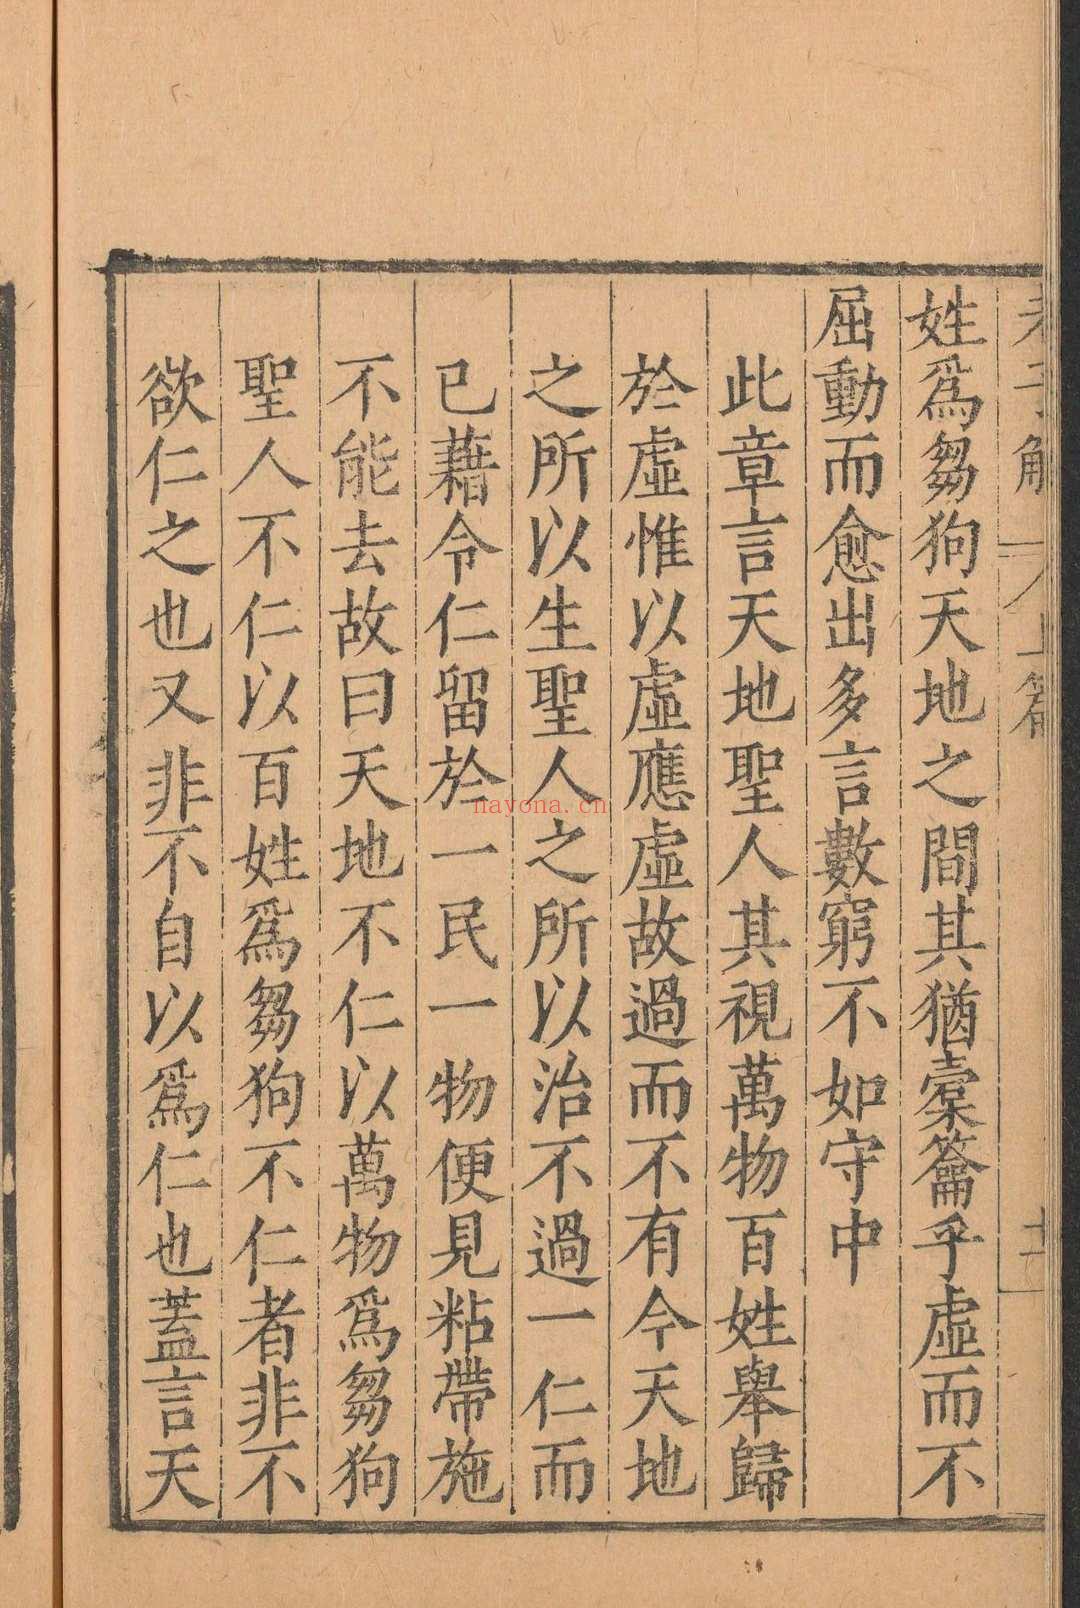 老子解 上篇 十一
姓爲芻狗天地之間其猶橐籥乎虛而不
屈動而愈出多言數窮不如守中
此章言天地聖人其視萬物百姓舉歸
於虛惟以虛應虛故過而不有今天地
之所以生聖人之所以治不過一仁而
已藉令仁留於一民一物便見粘帶施
不能去故曰天地不仁以萬物爲芻狗
聖人不仁以百姓爲芻狗不仁者非不
欲仁之也又非不自以爲仁也蓋言天
nayona.cn